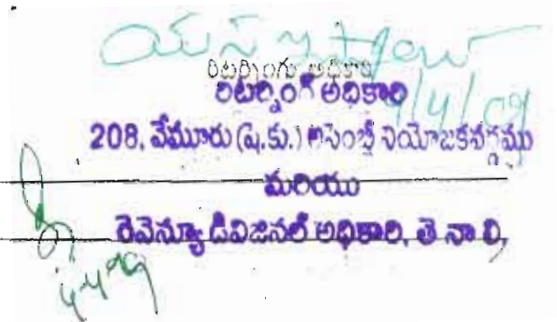 రిటర్నింగు అధికారి
రిటర్నింగ్ అధికారి
4/4/09
208, వేమూరు (షె.కు.) అసెంబ్లీ నియోజకవర్గము
మరియు
రెవెన్యూ డివిజనల్ అధికారి, తెనాలి,
4.4.09